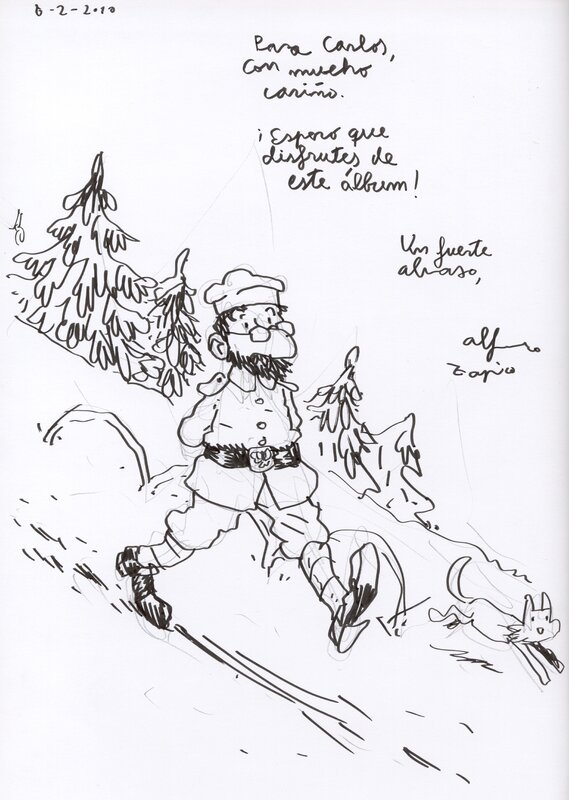 6-2-2010
Para Carlos,
con mucho
cariño.
¡Espero que
disfrutes de
este álbum!
Un fuerte
abrazo,
Alfonso
Zapico